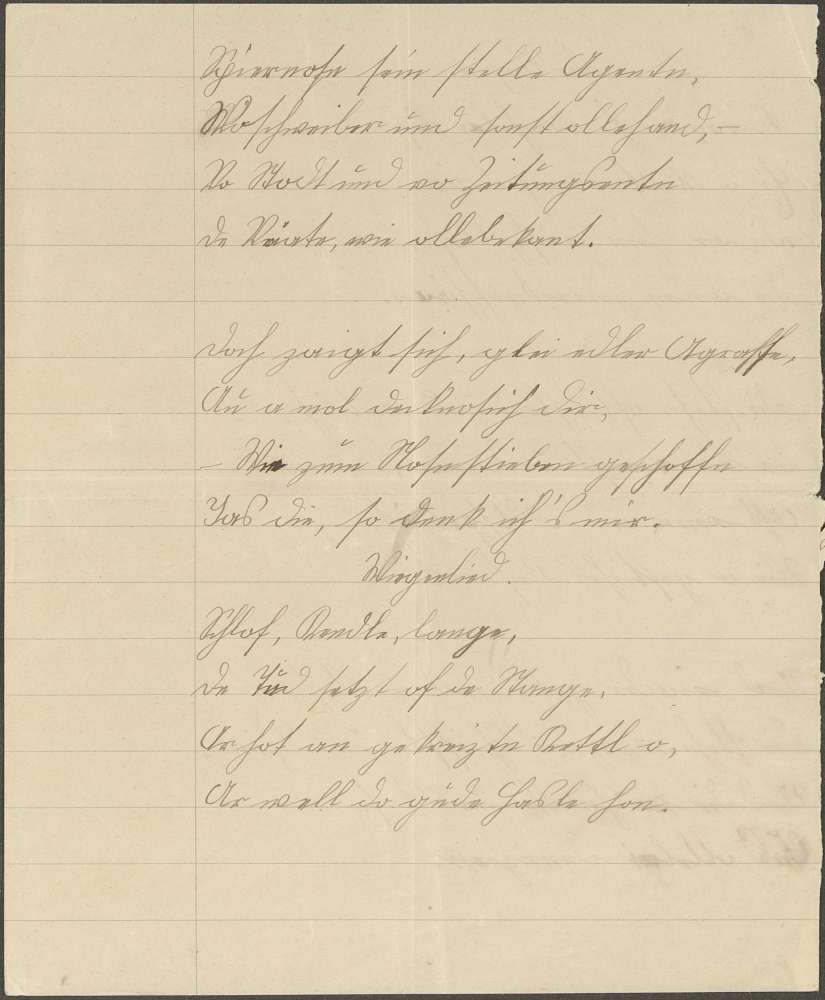 Spiernosn sein stelle Agentn,
Woschweiber und sonst ollehand, –
Vo Stodt und vo Zeitungsentn
de Väate, wie ollebekant.
Doch zaigt sich, glei edler Agraffe,
Au a mol de  dir,
– Wie zum Nosnstieben geschoffn
Jas die, so denk ich's mir.
Wiegenlied.
Schlof, Kendle, lange,
de Tud setzt of de Stange,
Er hot an gekreizte Kettl o,
Ar well do gude Hasle hon.